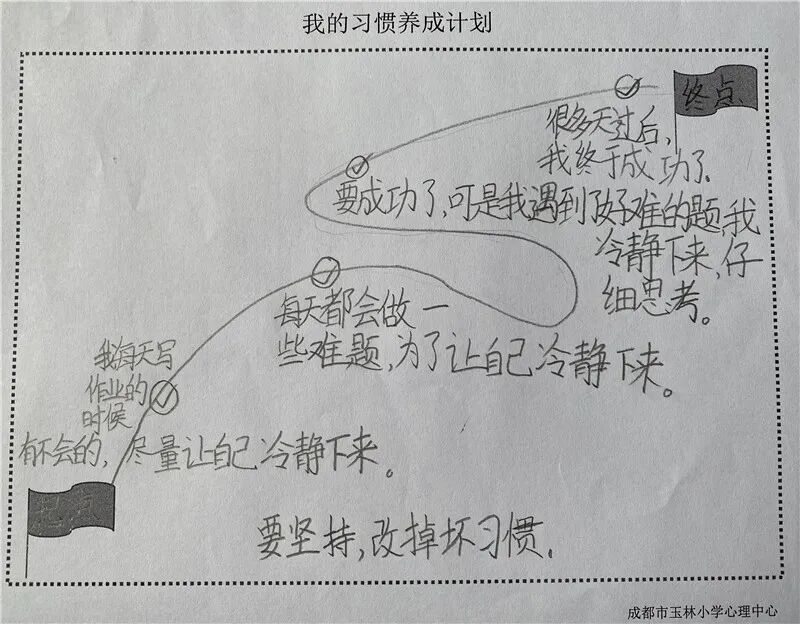 我的习惯养成计划
终点
很多天过后,
我终于成功了
要成功了,可是我遇到了好难的题,我
冷静下来,仔
细思考。
每天都会做一
些难题,为了让自己冷静下来。
我每天写
作业的
时候
有不会的,尽量让自己冷静下来。
起点
要坚持,改掉坏习惯.
成都市玉林小学心理中心